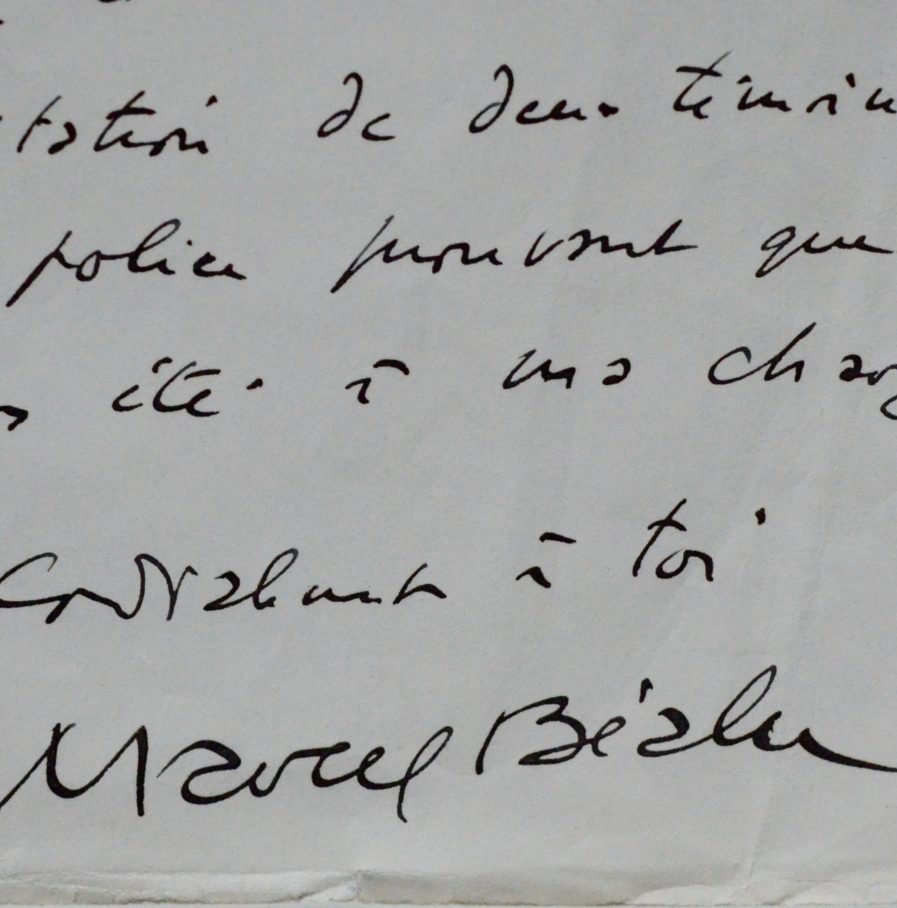 tation de deux témoin
police prouvant que
été à ma charg
Cordialement à toi
Marcel Béalu